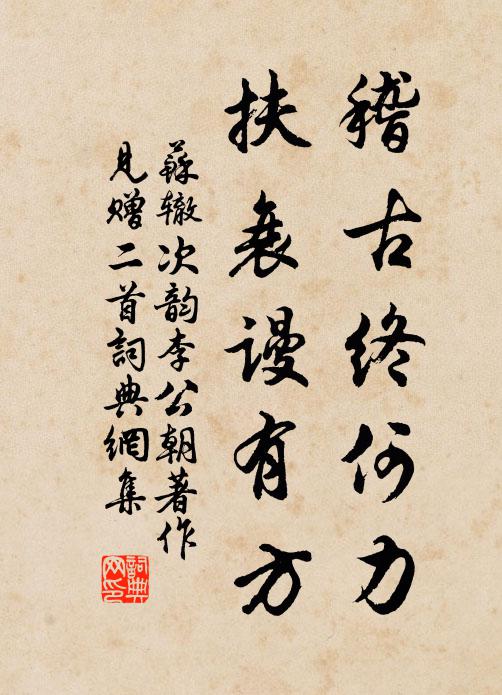 稽古终何力
扶衰谩有方
蘇辙次韵李公朝著作
見赠二首詞典網集
詞典
网印